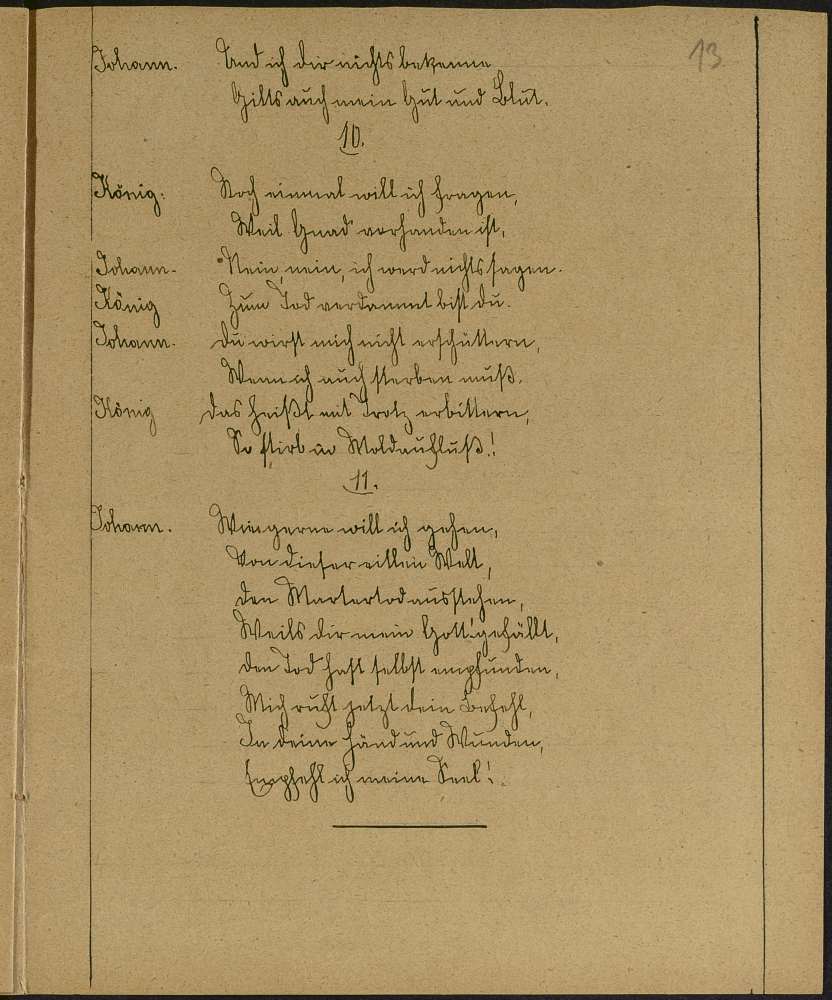 13
Johann. Und ich dir nichts bekenne
Gilts auch mein Gut und Blut.
10.
König: Noch einmal will ich fragen,
Weil Gnad' vorhanden ist,
Johann. Nein, nein, ich werd nichts sagen.
König Zum Tod verdammt bist du.
Johann. Du wirst mich nicht erschüttern,
Wenn ich auch sterben muß.
König Das heißt mit Trotz erbittern,
So stirb im Moldaufluß!
11.
Johann. Wie gerne will ich gehen,
Von dieser eitlen Welt,
Den Martertod ausstehen,
Weils dir mein Gott! gefällt,
Den Tod hast selbst empfunden,
Mich ruft jetzt dein Befehl,
In deine Händ und Wunden,
Empfehl ich meine Seel!